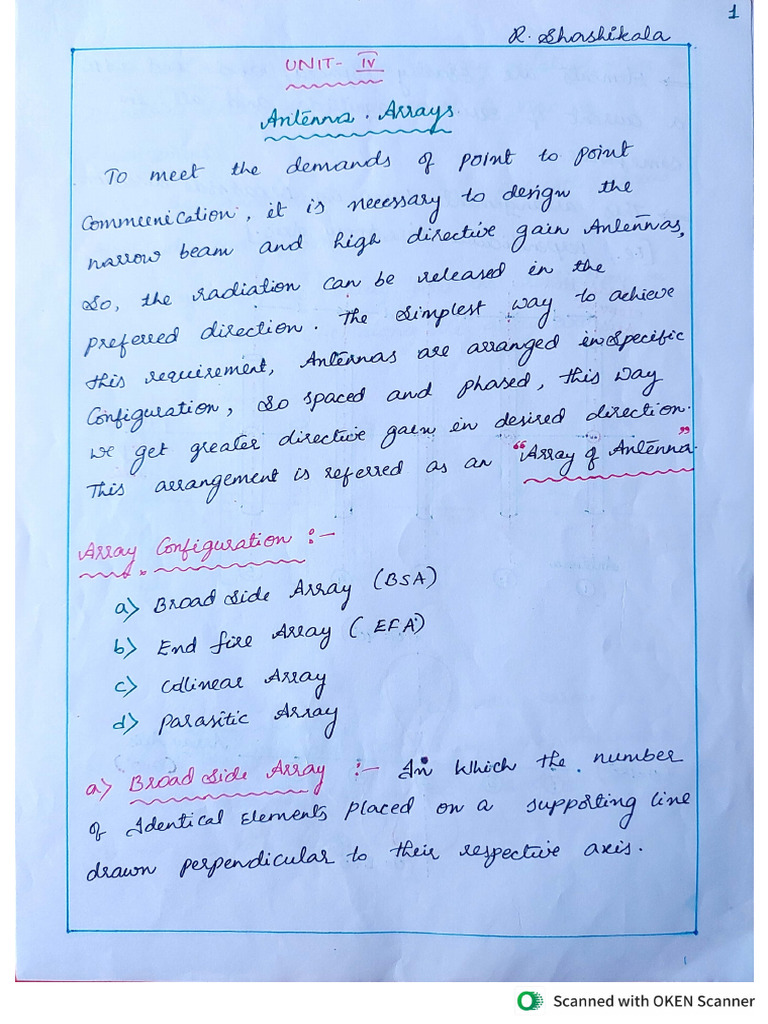 1
R. Shashikala
UNIT- IV
Antenna. Arrays
To meet the demands of point to point
Communication, it is necessary to design the
narrow beam and high directive gain Antennas,
So, the radiation can be released in the
preferred direction. The simplest way to achieve
this requirement, Antennas are arranged in specific
Configuration, so spaced and phased, this way
we get greater directive gain in desired direction.
This arrangement is referred as an "Array of Antenna"
Array Configuration :-
a) Broad Side Array (BSA)
b) End fire Array (EFA)
c) Collinear Array
d) Parasitic Array
a) Broad Side Array :- In Which the number
of Identical Elements placed on a supporting line
drawn perpendicular to their respective axis.
1
Scanned with OKEN Scanner